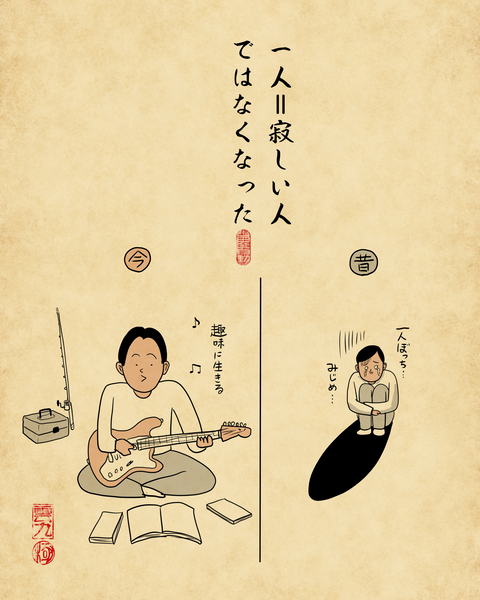 一人＝寂しい人
ではなくなった
昔
一人ぼっち…
みじめ…
今
趣味に生きる